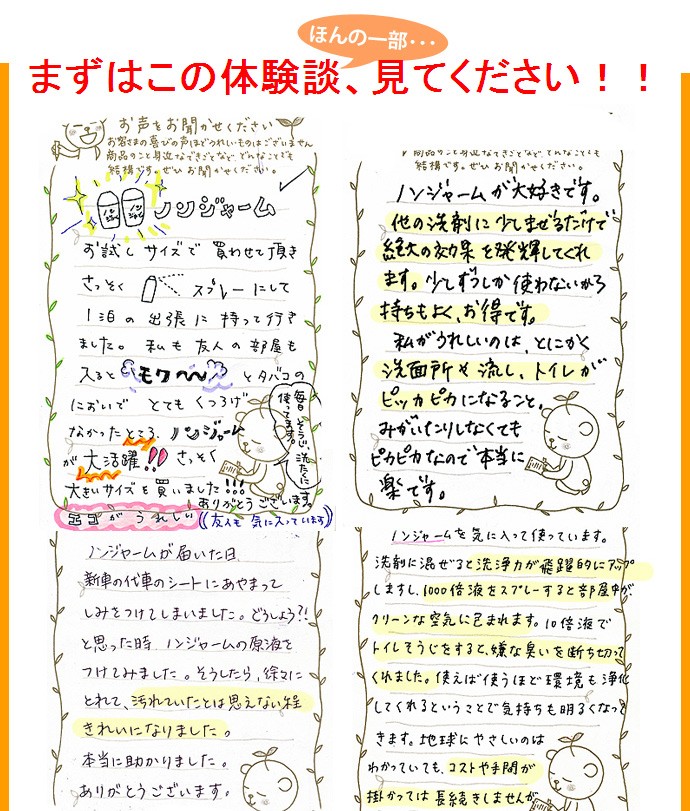 ほんの一部・・・
まずはこの体験談、見てください！！
お声をお聞かせください
お客さまの喜びの声ほどうれしいものはございません
商品のこと身近なできごとなど、どんなことでも
結構です。ぜひお聞かせください。
ノンジャーム
お試しサイズで買わせて頂き
さっそく スプレーにして
1泊の出張に持って行き
ました。私も友人の部屋も
入ると モワ〜〜 とタバコの
においで とてもくつろげ
なかったところ、ノンジャーム
が大活躍!! さっそく
大きいサイズを買いました!!!
ありがとうございます。
毎日 そうじ、洗たくに
使ってます。
エコがうれしい ((友人も気に入っています))
商品のこと身近なできごとなど、どんなことでも
結構です。ぜひお聞かせください。
ノンジャームが大好きです。
他の洗剤に少しまぜるだけで
絶大の効果を発揮してくれ
ます。少しずつしか使わないから
持ちもよく、お得です。
私がうれしいのは、とにかく
洗面所や流し、トイレが
ピッカピカになること。
みがいたりしなくても
ピカピカなので本当に
楽です。
ノンジャームが届いた日、
新車の代車のシートにあやまって
しみをつけてしまいました。どうしよう?!
と思った時、ノンジャームの原液を
つけてみました。そうしたら、徐々に
とれて、汚れていたとは思えない程
きれいになりました。
本当に助かりました。
ありがとうございます。
ノンジャームを気に入って使っています。
洗剤に混ぜると洗浄力が飛躍的にアップ
しますし、1000倍液をスプレーすると部屋中が
クリーンな空気に包まれます。10倍液で
トイレそうじをすると、嫌な臭いを断ち切って
くれました。使えば使うほど環境も浄化
してくれるということで気持ちも明るくなっ
きます。地球にやさしいのは
わかっていても、コストや手間が
掛かっては長続きしませんが